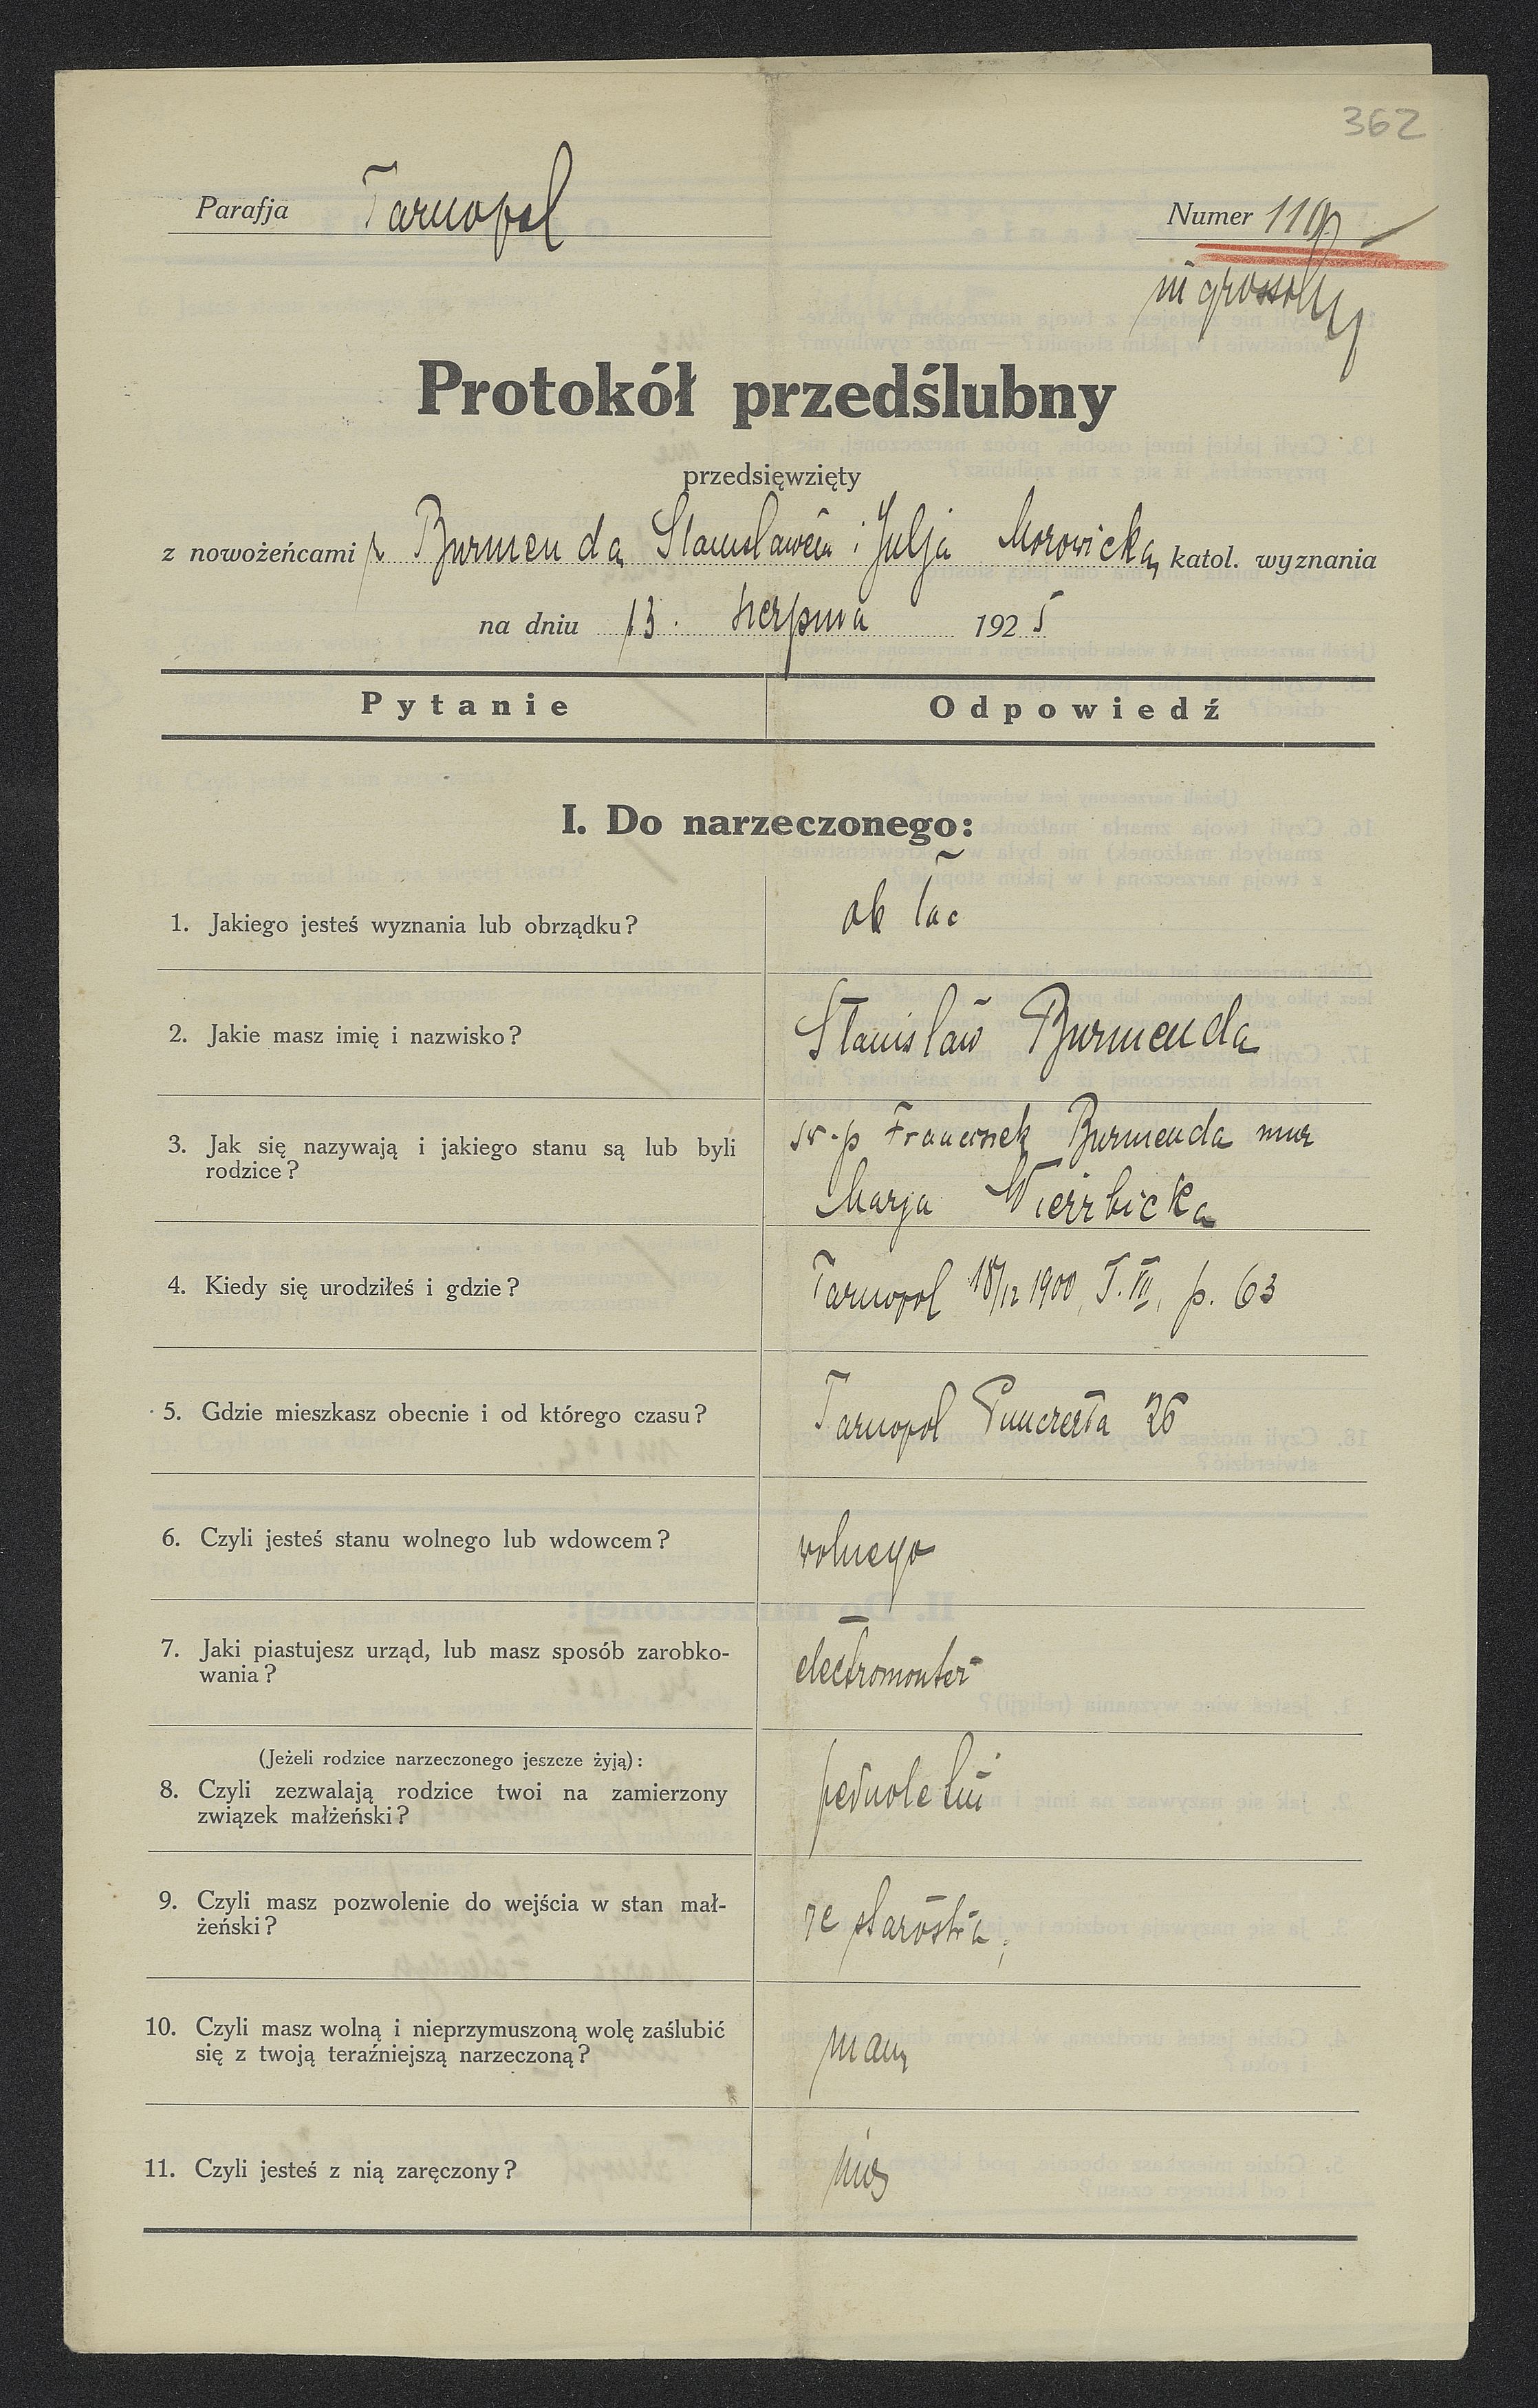 362
Parafja Tarnopol
Numer 119
ingrossow
Protokół przedślubny
przedsięwzięty
z nowożeńcami Burmendą Stanisławem i Julją Morowicką katol. wyznania
na dniu 13. sierpnia 1925
Pytanie Odpowiedź
I. Do narzeczonego:
1. Jakiego jesteś wyznania lub obrządku? ob łac
2. Jakie masz imię i nazwisko? Stanisław Burmenda
3. Jak się nazywają i jakiego stanu są lub byli rodzice? św. p Franciszek Burmenda mur
Marja Wierzbicka
4. Kiedy się urodziłeś i gdzie? Tarnopol 18/12 1900, T. III, p. 63
5. Gdzie mieszkasz obecnie i od którego czasu? Tarnopol 26
6. Czyli jesteś stanu wolnego lub wdowcem? wolnego
7. Jaki piastujesz urząd, lub masz sposób zarobko-
wania? electromonter
(Jeżeli rodzice narzeczonego jeszcze żyją):
8. Czyli zezwalają rodzice twoi na zamierzony
związek małżeński? pełnoletni
9. Czyli masz pozwolenie do wejścia w stan mał-
żeński? ze starostwa
10. Czyli masz wolną i nieprzymuszoną wolę zaślubić
się z twoją teraźniejszą narzeczoną? mam
11. Czyli jesteś z nią zaręczony?